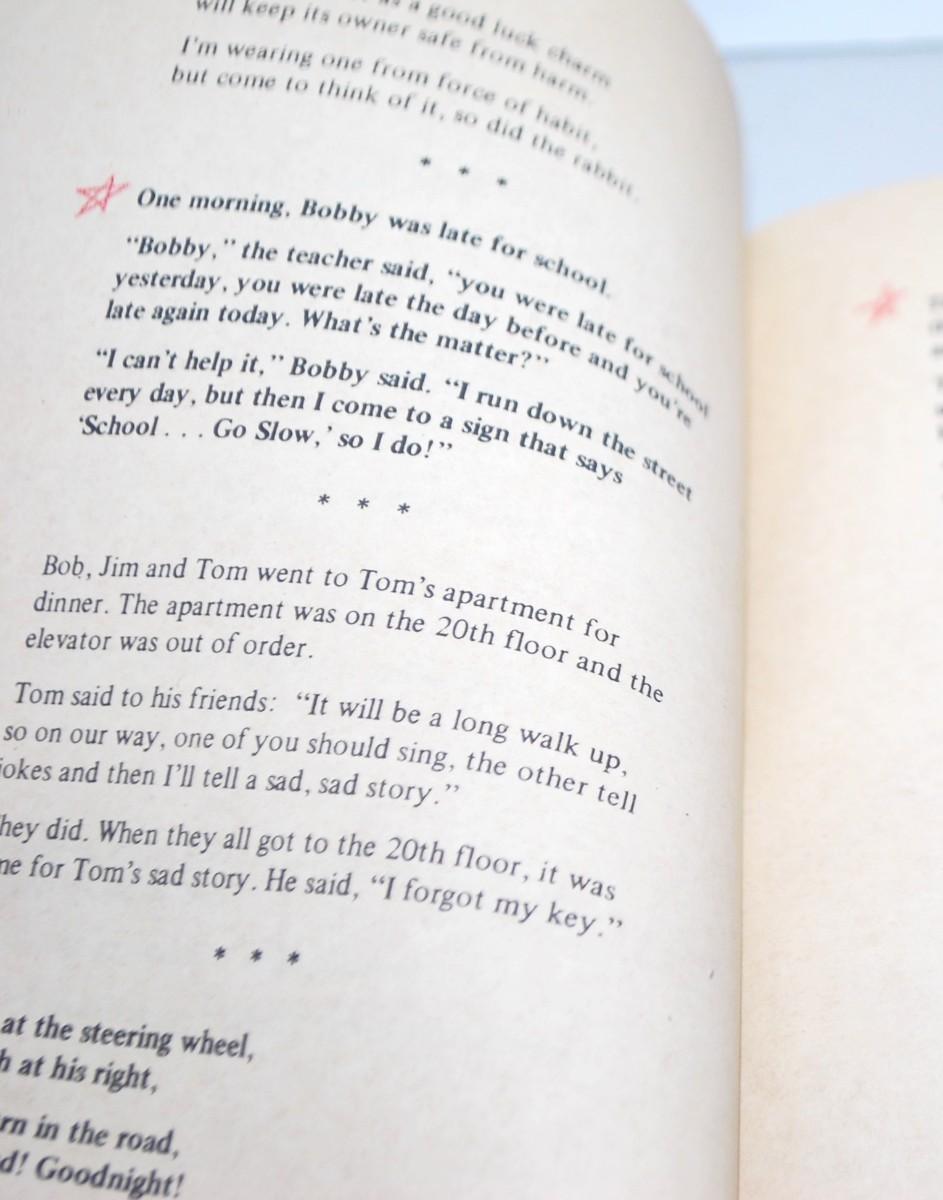 as a good luck charm
will keep its owner safe from harm.
I'm wearing one from force of habit,
but come to think of it, so did the rabbit.
* * *
One morning, Bobby was late for school.
"Bobby," the teacher said, "you were late for school
yesterday, you were late the day before and you're
late again today. What's the matter?"
"I can't help it," Bobby said. "I run down the street
every day, but then I come to a sign that says
'School . . . Go Slow,' so I do!"
* * *
Bob, Jim and Tom went to Tom's apartment for
dinner. The apartment was on the 20th floor and the
elevator was out of order.
Tom said to his friends: "It will be a long walk up,
so on our way, one of you should sing, the other tell
jokes and then I'll tell a sad, sad story."
They did. When they all got to the 20th floor, it was
for Tom's sad story. He said, "I forgot my key."
* * *
at the steering wheel,
at his right,
in the road,
Goodnight!